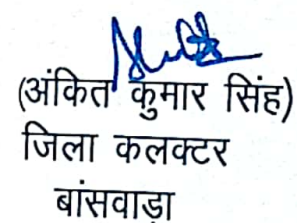 (अंकित कुमार सिंह)
जिला कलक्टर
बांसवाड़ा